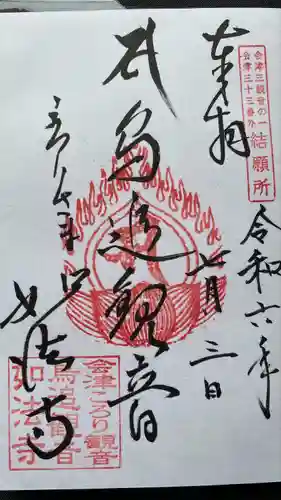 奉拝
会津三観音の一
会津三十三番外
結願所
令和六年
七月三日
鳥追観音
ころり
如法寺
会津ころり観音
鳥追観音
如法寺